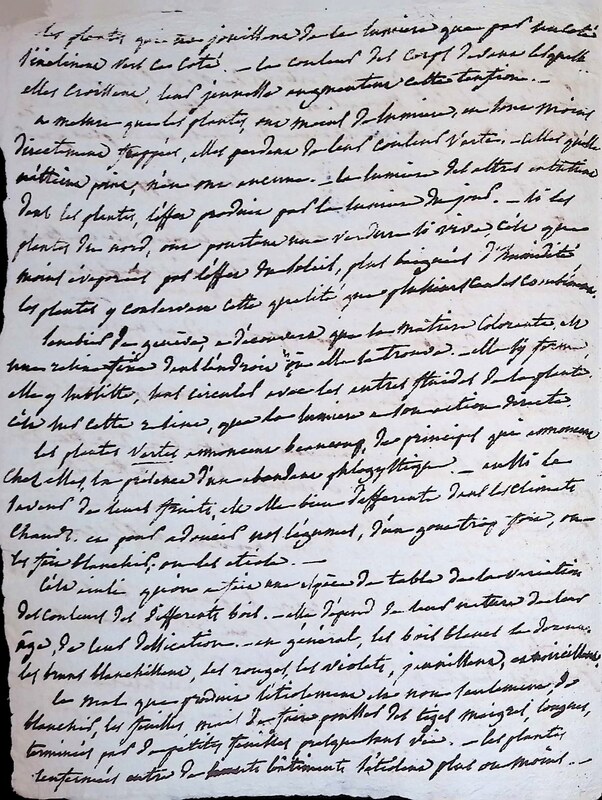 les plantes qui ne jouissent de la lumiere que par un coté
s'inclinent vers ce coté. — la couleur des corps dans lesquels
elles croissent, leur jeunesse augmentent cette
a mesure que les plantes, ont moins de lumiere, en sont moins
directement frappées, elles perdent de leur couleur verte. — celles qu'elle
n'atteint point, n'en ont aucune. — la lumiere des astres entretient
dans les plantes, l'effet produit par la lumiere du jour. — si les
plantes du nord, ont pourtant une verdure si vive, c'est que
moins évaporées par l'effet du soleil, plus baignées d'humidité
les plantes y conservent cette qualité, que plusieurs causes
Senebier de genève, a découvert que la matiere colorante, est
une resine fixée dans l'endroit où elle se trouve. — elle s'y forme
elle y subsiste, sans circuler avec les autres fluides de la plante.
c'est sur cette resine, que la lumiere a son action directe.
les plantes vertes annoncent beaucoup, de principes qui annoncent
chez elles, la présence d'un abondant phlogistique. — aussi la
saveur de leurs fruits, est elle bien differente dans les climats
chauds. et pour adoucir nos légumes, d'un gout trop fort, on
les fait blanchir, ou les etiole. —
C'est ainsi qu'on a fait une espèce de table de la variation
des couleurs des differents bois. — elle dépend de leur nature de leur
âge, de leur dessication. — en general, les bois blancs se dorent
les bruns blanchissent, les rouges, les violets, jaunissent, et noircissent
le mal que produit l'etiolement est non seulement, de
blanchir, les feuilles, mais de faire pousser des tiges maigres, longues,
terminées par de petites feuilles presque sans vie. — les plantes
renfermées entre de hauts bâtiments s'étiolent plus ou moins. —